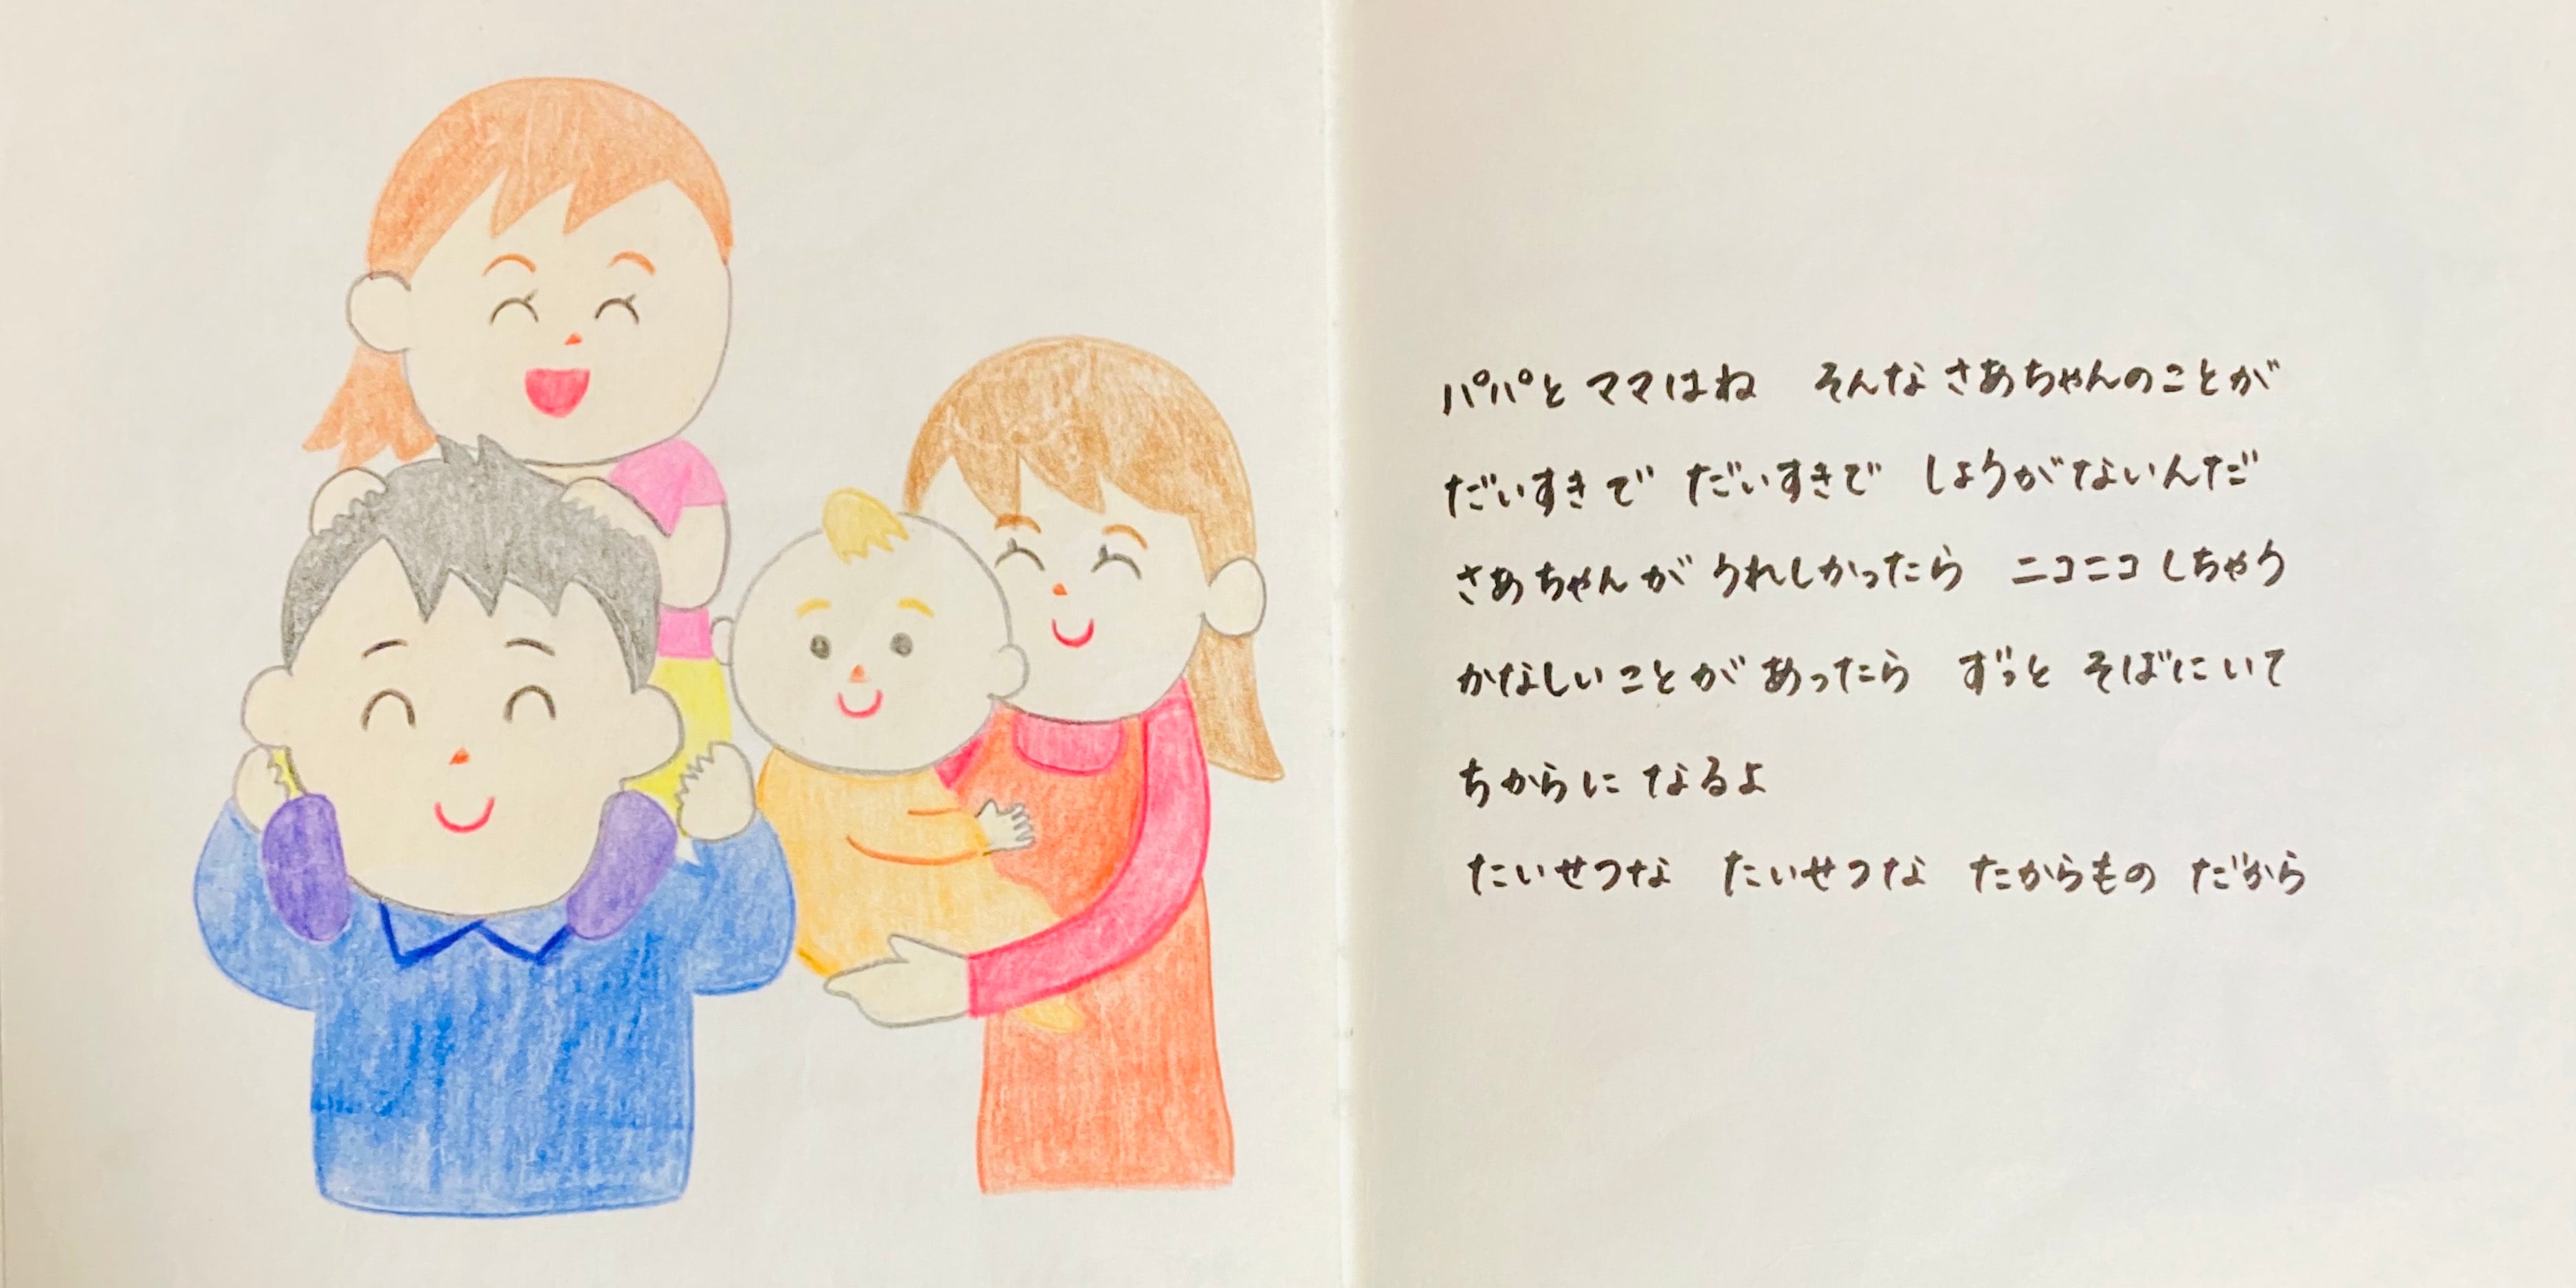 パパと ママはね　そんな さあちゃんのことが
だいすきで だいすきで　しょうがないんだ
さあちゃんが うれしかったら　ニコニコ しちゃう
かなしいことが あったら　ずっと そばに いて
ちからに なるよ
たいせつな　たいせつな　たからもの だから